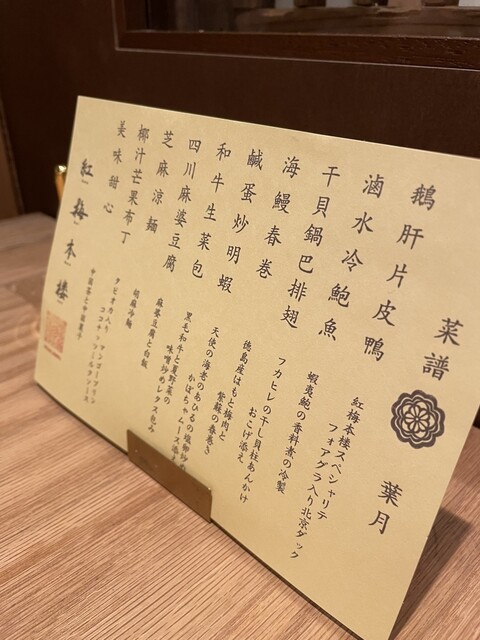 菜譜 葉月
鵝肝片皮鴨
紅梅本楼スペシャリテ
フォアグラ入り北京ダック
滷水冷鮑魚
蝦夷鮑の香料煮の冷製
干貝鍋巴排翅
フカヒレの干し貝柱あんかけ
おこげ添え
海鰻春巻
徳島産はもと梅肉と
紫蘇の春巻き
鹹蛋炒明蝦
天使の海老のあひるの塩卵炒め
かぼちゃムース添え
和牛生菜包
黒毛和牛と夏野菜の
味噌炒めレタス包み
四川麻婆豆腐
麻婆豆腐と白飯
芝麻涼麺
胡麻冷麺
椰汁芒果布丁
タピオカ入り
ココナッツマンゴープリン
美味甜心
中国茶と中国菓子
紅梅本楼